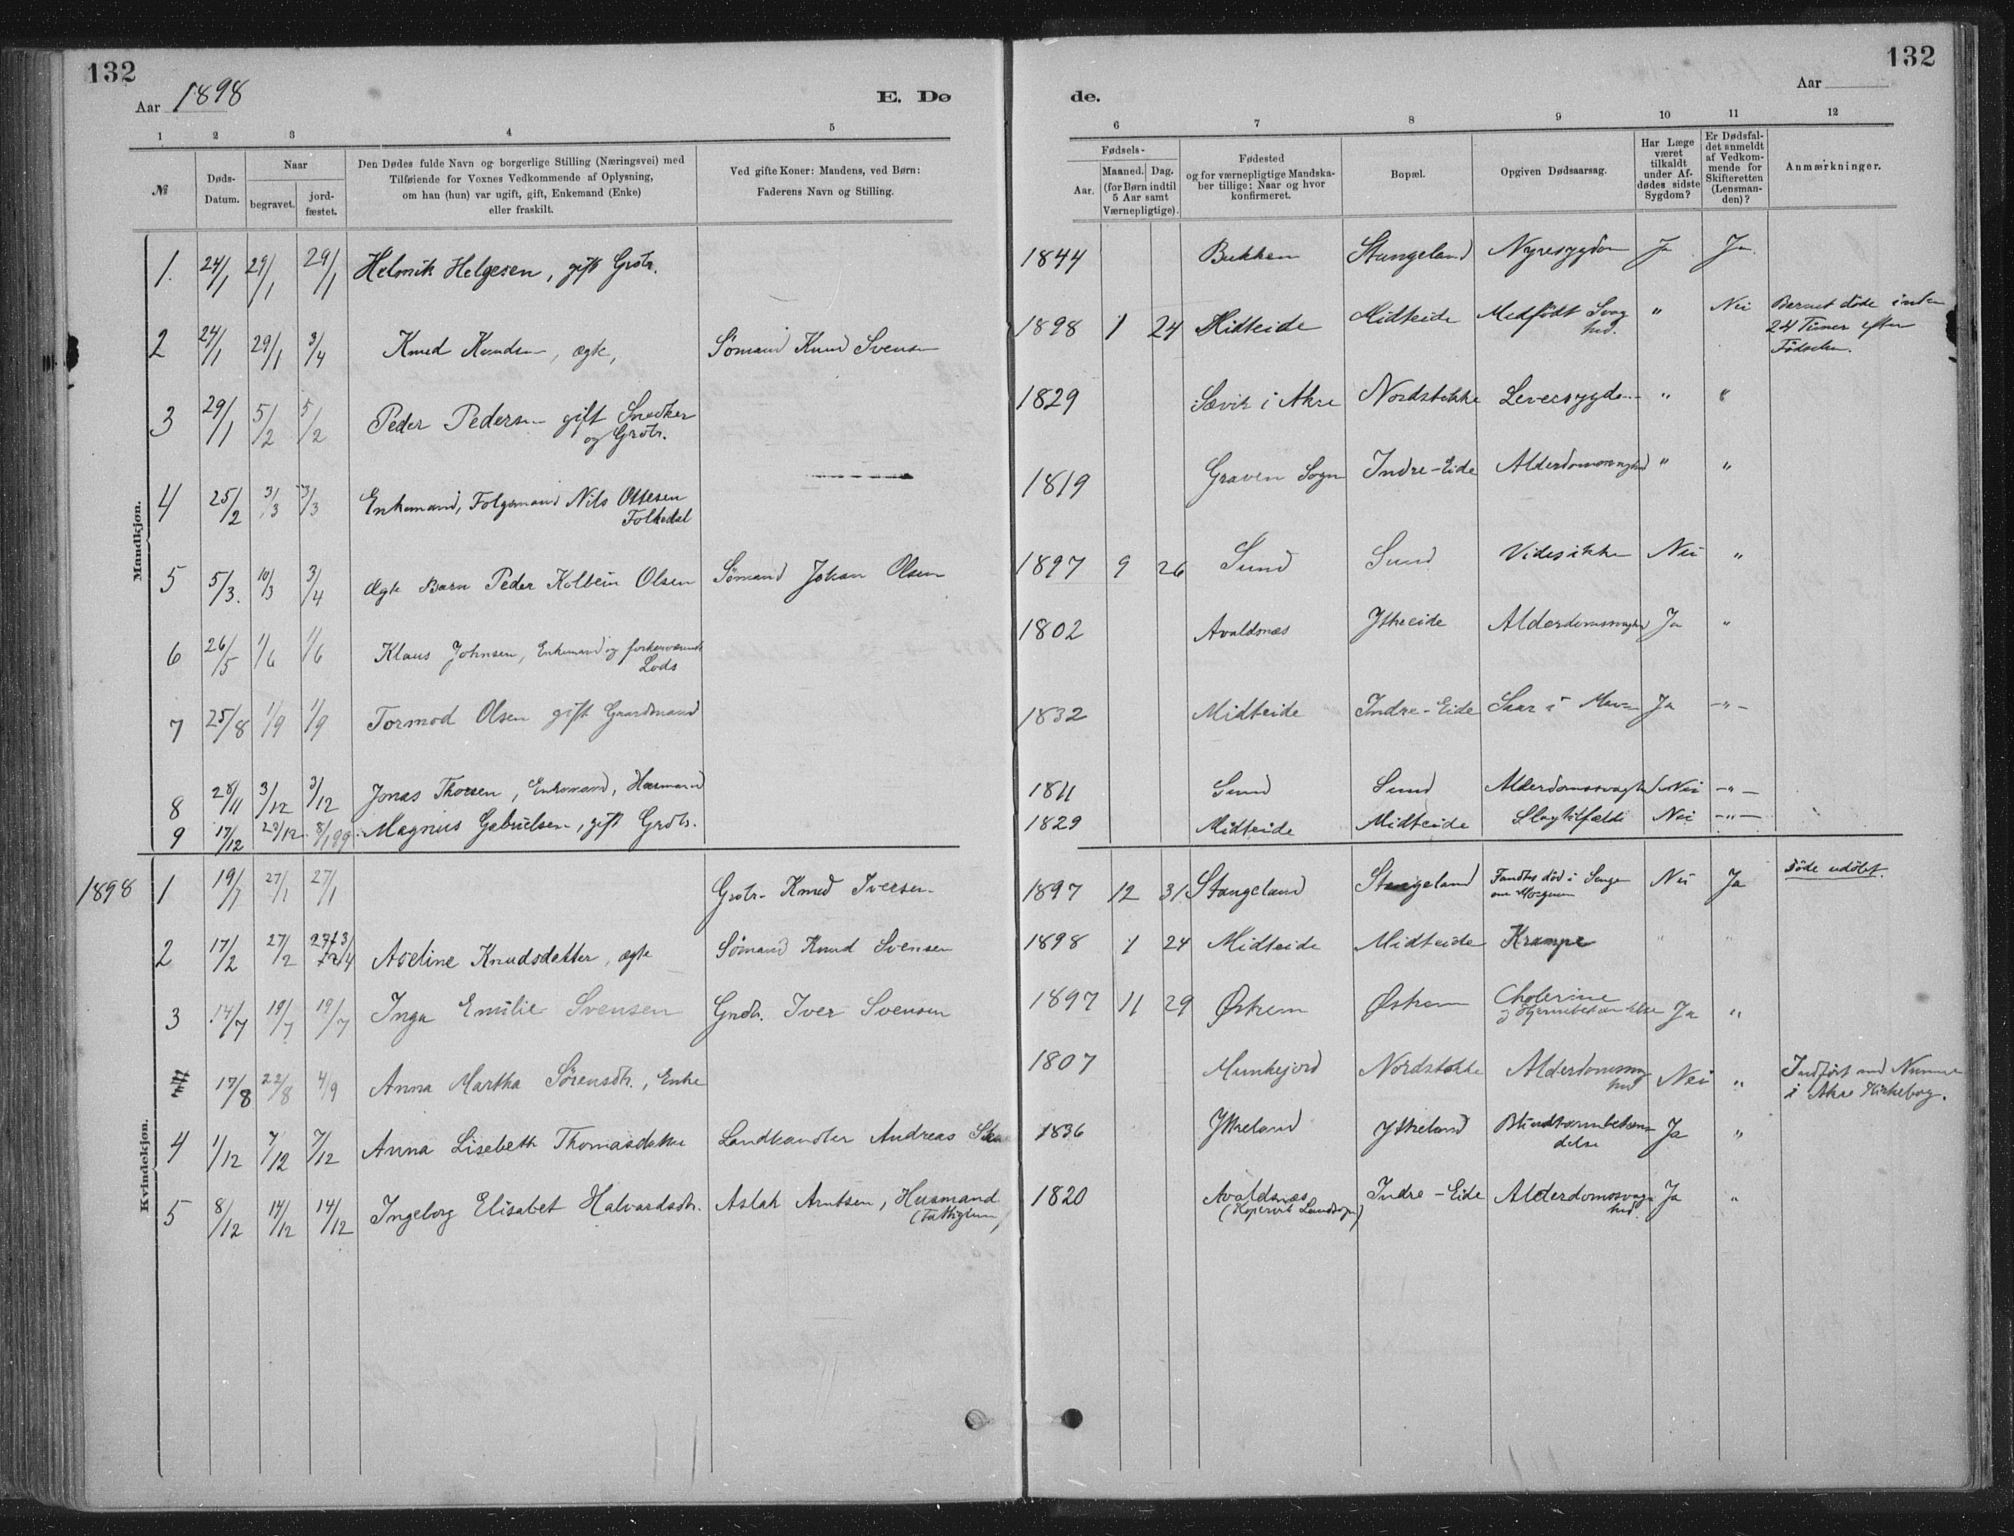 132
132
Aar 1898
E. Dø
de.
Aar
1 2 3 4 5
6 7 8 9 10 11 12
№
Døds-Datum.
Naar
begravet.
jord-fæstet.
Den Dødes fulde Navn og borgerlige Stilling (Næringsvei) med
Tilføiende for Voxnes Vedkommende af Oplysning,
om han (hun) var ugift, gift, Enkemand (Enke)
eller fraskilt.
Ved gifte Koner: Mandens, ved Børn:
Faderens Navn og Stilling.
Fødsels-
Aar.
Maaned. Dag.
(for Børn indtil
5 Aar samt
Værnepligtige).
Fødested
og for værnepligtige Mandska-
ber tillige: Naar og hvor
konfirmeret.
Bopæl.
Opgiven Dødsaarsag.
Har Læge
været
tilkaldt
under Af-
dødes sidste
Sygdom?
Er Dødsfal-
det anmeldt
af Vedkom-
mende for
Skifteretten
(Lensman-
den)?
Anmærkninger.
Mandkjøn.
1. 24/1 29/1 29/1 Helmik Helgesen, gift Grdbr. 1844 Bukken Stangeland Nyresygdom Ja Ja.
2 24/1 29/1 3/4 Knud Knudsen, ægte, Sømand Knud Svensen 1898 1 24 Midteide Midteide Medfødt Svaghed. " Nei Barnet døde inden
24 Timer efter
Fødselen.
3 29/1 5/2 5/2 Peder Pedersen gift Snedker
og Grdbr. 1829 Sævik i Akre Nordstokke Leversygdom " "
4 25/2 3/3 3/3 Enkemand, Folgemand Nils Ottesen
Folkedal 1819 Graven Sogn Indre-Eide Alderdomssvaghed " "
5 5/3. 10/3 3/4 Ægte Barn Peder Kolbein Olsen Sømand Johan Olsen 1897 9 26 Sund Sund Vides ikke Nei "
6 26/5 1/6 1/6 Klaus Johnsen, Enkemand og forhenværende
Lods 1802 Avaldsnæs Ytreeide Alderdomssvaghed Ja "
7 25/8 1/9 1/9 Tormod Olsen gift Gaardmand 1832 Midteide Indre-Eide Saar i Maven Ja -"-
8 28/11 3/12 3/12 Jonas Thorsen, Enkemand, Husmand 1811 Sund Sund Alderdomssvaghed Nei -"-
9 17/12 29/12 8/1 99. Magnus Gabrielsen, gift Grdbr. 1829 Midteide Midteide Slagtilfælde Nei -"-
Kvindekjøn.
1898 1 19/1 27/1 27/1 Grdbr. Knud Iversen 1897 12 31 Stangeland Stangeland Fandtes død i Sengen
om Morgenen Nei Ja Døde udøbt.
2 17/2 27/2 3/4 Aseline Knudsdatter, ægte Sømand Knud Svensen 1898 1 24 Midteide Midteide Krampe " "
3 14/7 19/7 19/7 Inga Emilie Svensen Grdbr. Iver Svensen 1897 11 29 Østrem Østrem Cholerine
og Hjernebetændelse Ja "
17/8 22/8 4/9 Anna Martha Sørensdtr., Enke 1807 Munkejord Nordstokke Alderdomssvag
hed Nei " Indført med Nummer
i Akre Kirkebog.
4 1/12 7/12 7/12 Anna Lisebeth Thomasdatter Landhandler Andreas 1836 Ytreland Ytreland Blindtarmbetæn
delse Ja "
5 8/12 14/12 14/12 Ingeborg Elisabet Halvardsdtr. Aslak Arntsen, Husmand
(Fattiglem) 1820 Avaldsnæs
(Kopervik Landsogn) Indre-Eide Alderdomssvag
hed. Ja "